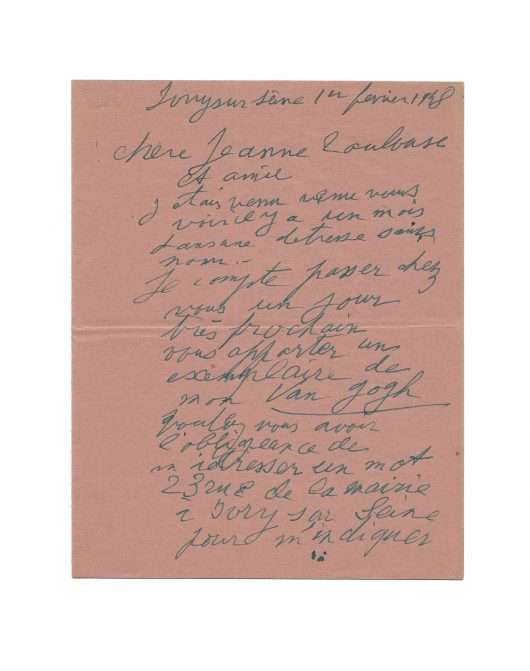 Ivry sur Seine 1er février 1948
chère Jeanne Toulouse
et amie
j étais venu même vous
voir il y a un mois
dans une détresse sans
nom.-
Je compte passer chez
vous un jour
très prochain
vous apporter un
exemplaire de
mon Van Gogh
voulez vous avoir
l'obligeance de
m'adresser un mot
23 rue de la mairie
à Ivry sur Seine
pour m'indiquer